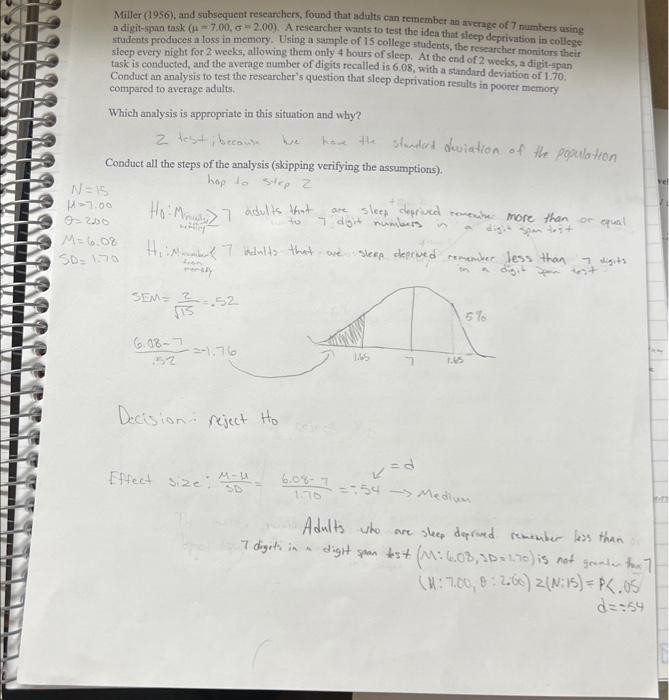 Miller (1956), and subsequent researchers, found that adults can remember an average of 7 numbers using
a digit-span task (μ = 7.00, σ = 2.00). A researcher wants to test the idea that sleep deprivation in college
students produces a loss in memory. Using a sample of 15 college students, the researcher monitors their
sleep every night for 2 weeks, allowing them only 4 hours of sleep. At the end of 2 weeks, a digit-span
task is conducted, and the average number of digits recalled is 6.08, with a standard deviation of 1.70.
Conduct an analysis to test the researcher's question that sleep deprivation results in poorer memory
compared to average adults.
Which analysis is appropriate in this situation and why?
Z test; because we have the standard deviation of the population
Conduct all the steps of the analysis (skipping verifying the assumptions).
hop to step 2
N=15
μ=7.00
σ=2.00
M=6.08
SD=1.70
Ho: M ≥ 7 adults that are sleep deprived remember more than or equal
to 7 digit numbers in a digit span test
H1: M < 7 adults that are sleep deprived remember less than 7 digits
in a digit span test
SEM = 2/√15 = .52
5%
6.08-7/.52 = -1.76
1.65 7 1.65
Decision: reject Ho
Effect size: M-μ/SD = 6.08-7/1.70 = -.54 → Medium
=d
Adults who are sleep deprived remember less than
7 digits in a digit span test (M: 6.08, SD=1.70) is not greater than 7
(μ: 7.00, σ: 2.00) Z(N:15) = P<.05
d=-.54